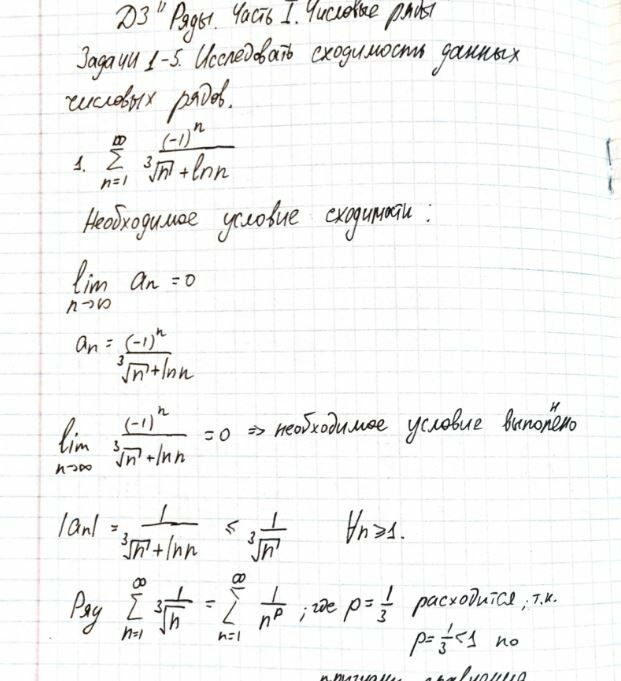 ДЗ "Ряды. Часть I. Числовые ряды
Задачи 1-5. Исследовать сходимость данных
числовых рядов.
1. ∑_{n=1}^{∞} (-1)^n / (∛n + ln n)
Необходимое условие сходимости:
lim_{n→∞} a_n = 0
a_n = (-1)^n / (∛n + ln n)
lim_{n→∞} (-1)^n / (∛n + ln n) = 0 ⇒ необходимое условие выполнено
|a_n| = 1 / (∛n + ln n) ≤ 1 / ∛n ∀n ≥ 1.
Ряд ∑_{n=1}^{∞} 1 / ∛n = ∑_{n=1}^{∞} 1 / n^p ; где p = 1/3 расходится, т.к.
p = 1/3 < 1 по